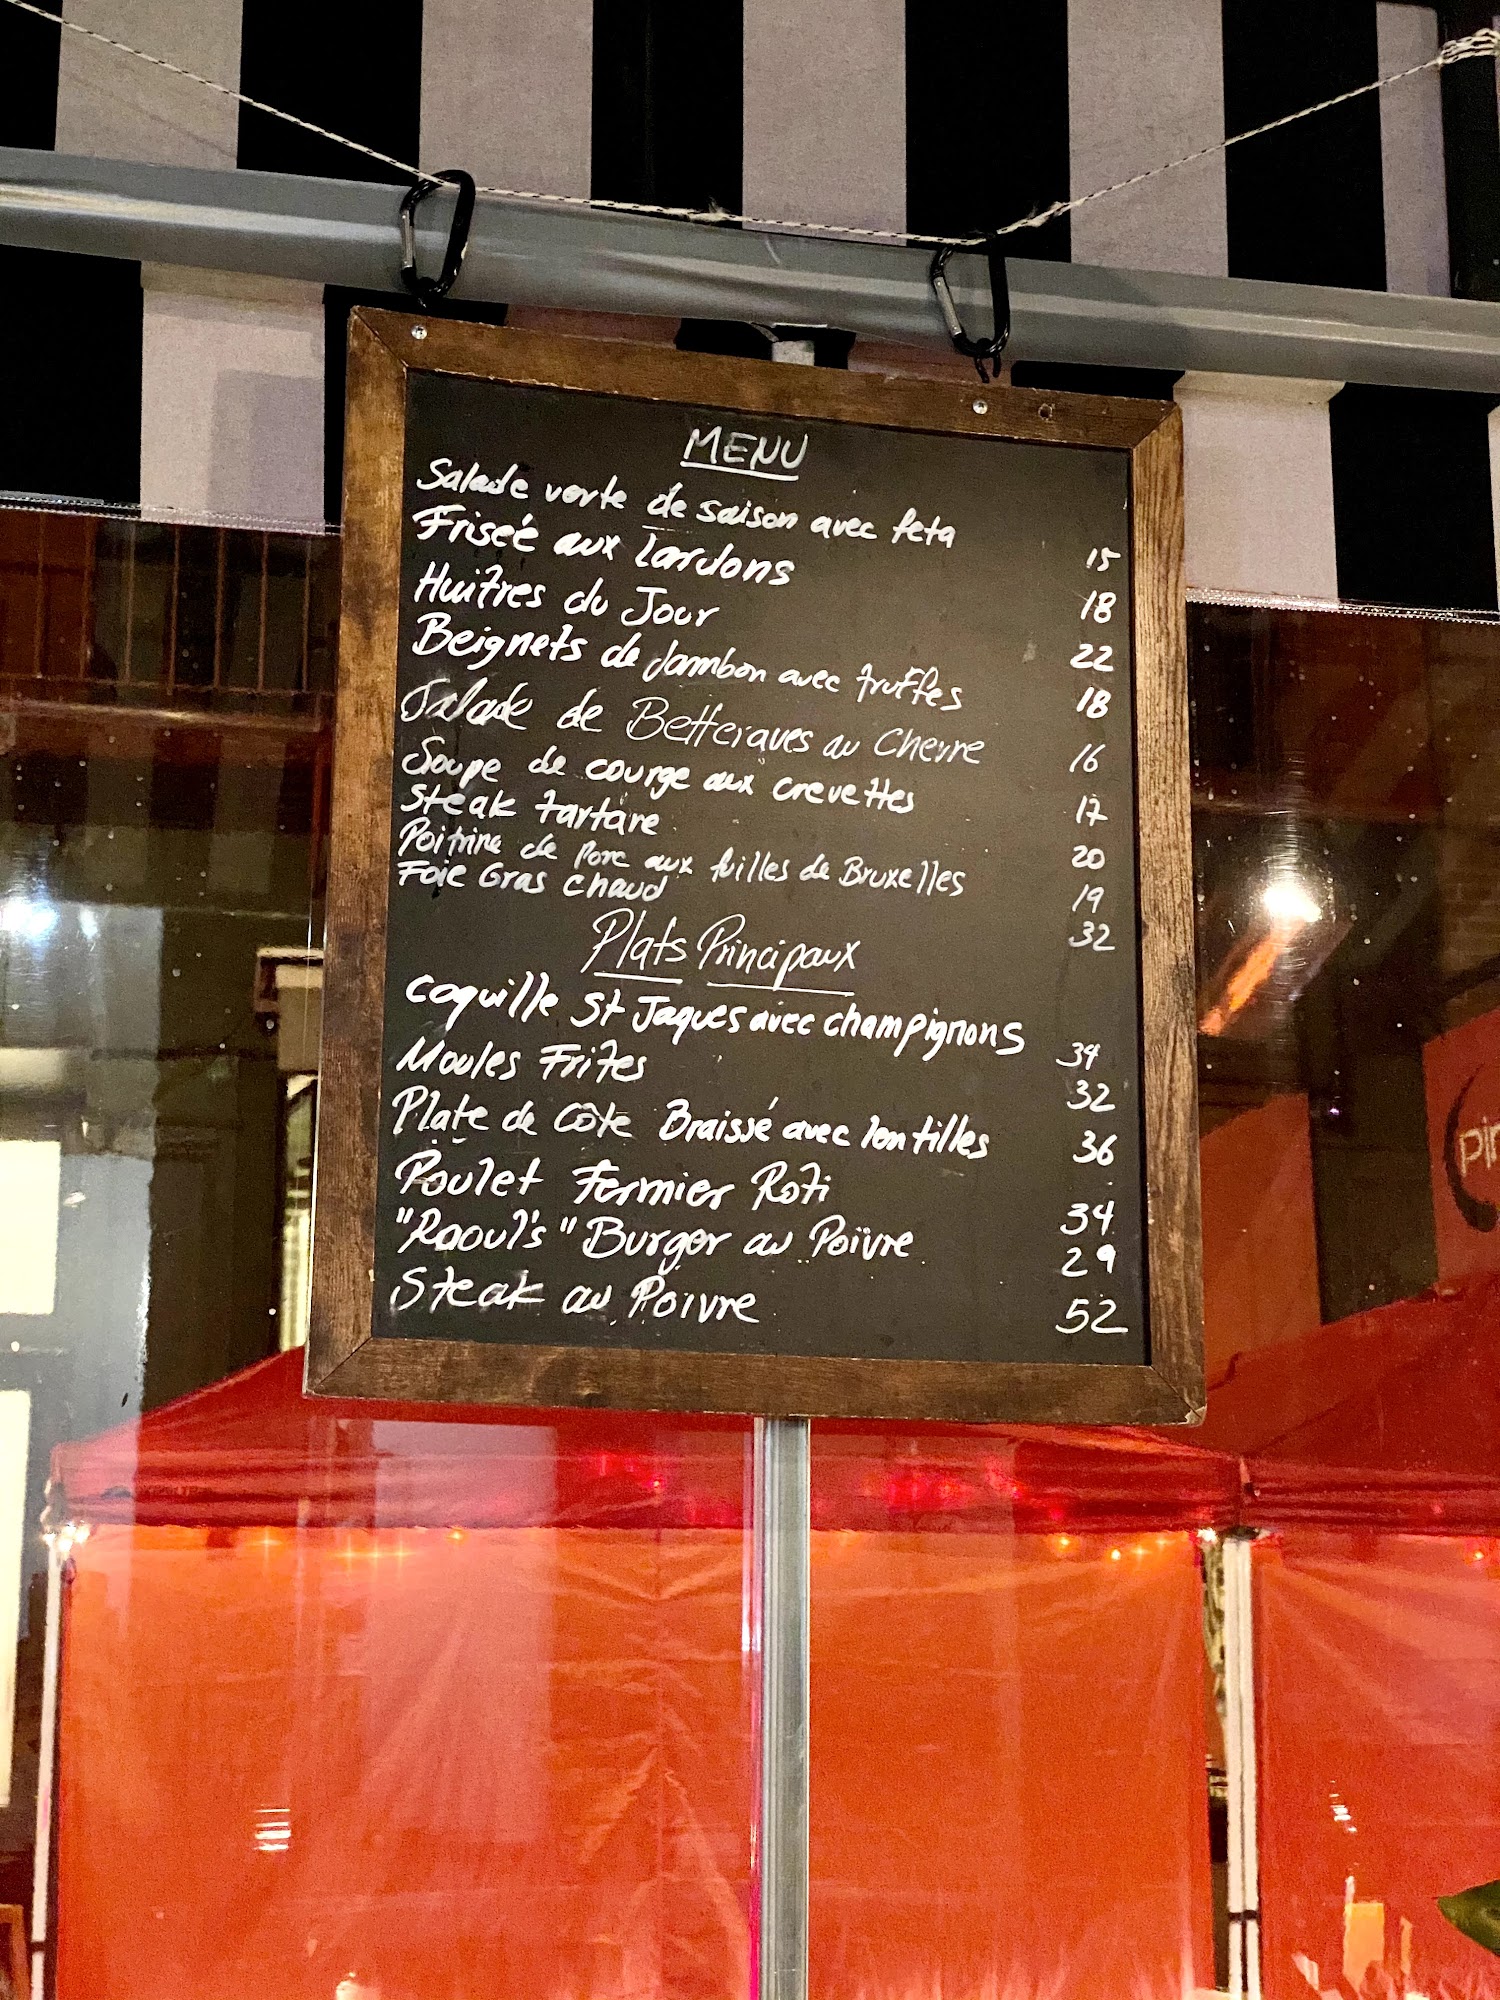 MENU
Salade verte de saison avec feta 15
Friseé aux lardons 18
Huîtres du Jour 22
Beignets de Jambon avec truffes 18
Salade de Betteraves au Chevre 16
Soupe de courge aux crevettes 17
Steak tartare 20
Poitrine de Porc aux fuilles de Bruxelles 19
Foie Gras Chaud 32
Plats Principaux
Coquille St Jaques avec champignons 34
Moules Frites 32
Plate de Côte Braissé avec lentilles 36
Poulet Fermier Roti 34
"Raoul's" Burger au Poivre 29
Steak au Poivre 52